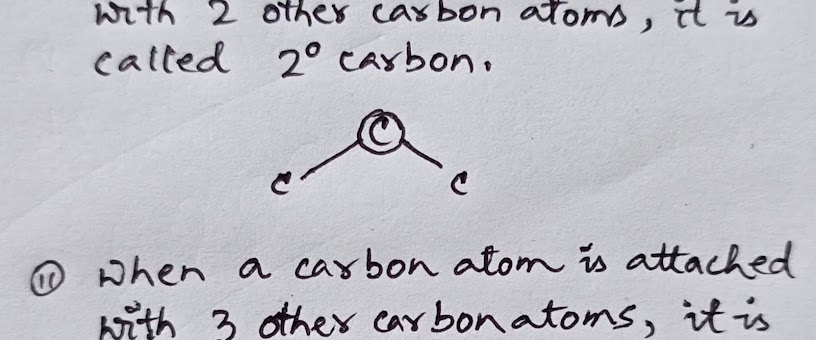 with 2 other carbon atoms, it is
called 2° carbon.
C
C C
(11) When a carbon atom is attached
with 3 other carbon atoms, it is